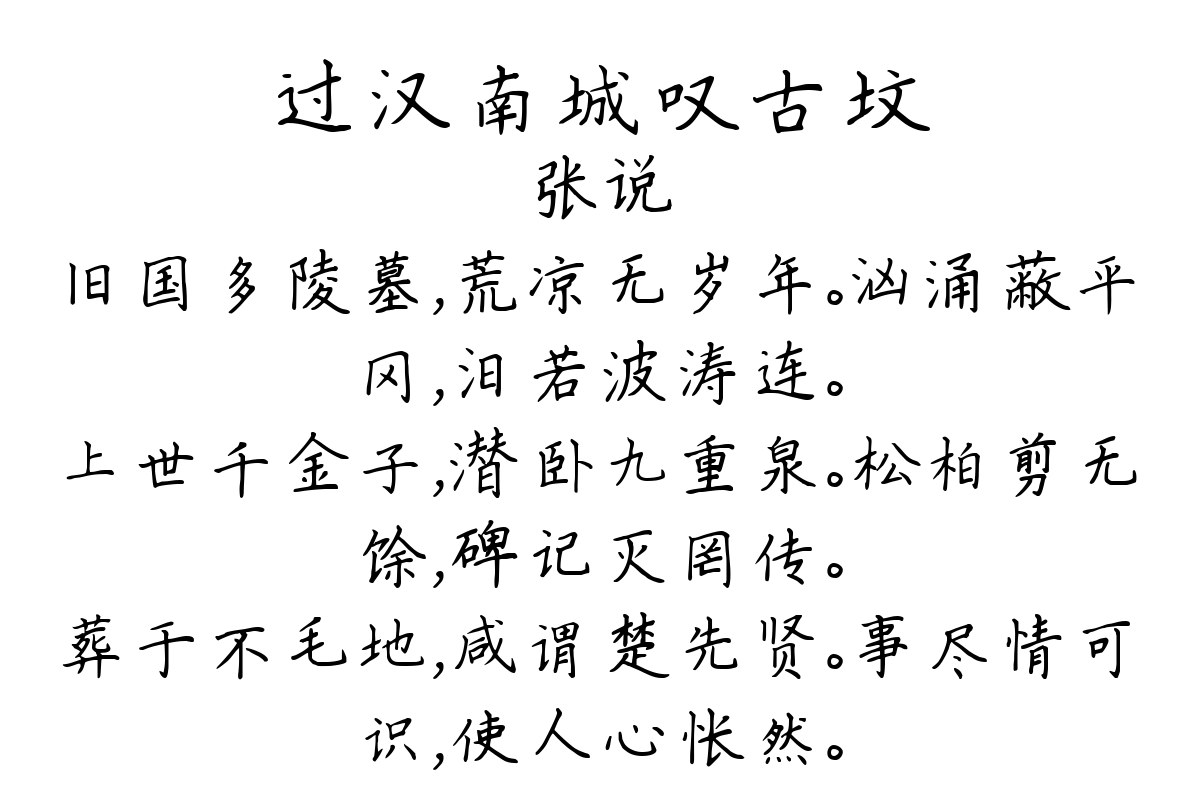 过汉南城叹古坟
张说
旧国多陵墓,荒凉无岁年。汹涌蔽平
冈,汩若波涛连。
上世千金子,潜卧九重泉。松柏剪无
馀,碑记灭罔传。
葬于不毛地,咸谓楚先贤。事尽情可
识,使人心怅然。